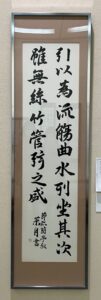 引以為流觴曲水列坐其次
雖無絲竹管弦之盛